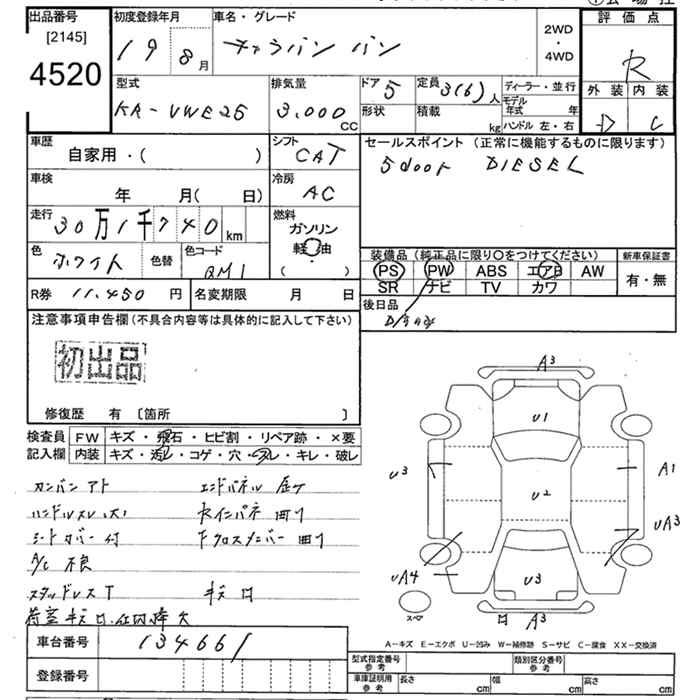 出品番号
[2145]
4520
初度登録年月
19 8月
車名・グレード
キャラバン バン
2WD
・
4WD
評価点
R
外装 内装
D C
型式
KR-VWE25
排気量
3,000 CC
ドア 5
形状
定員 3(6)人
積載 kg
ディーラー・並行
モデル年式 年
ハンドル 左・右
車歴
自家用・( )
シフト
CAT
車検
年 月( 日)
冷房
AC
走行
30万1千740km
燃料
ガソリン
軽油
( )
色
ホワイト
色替
色コード
QM1
R券 11,450円
名変期限 月 日
セールスポイント (正常に機能するものに限ります)
5door DIESEL
装備品(純正品に限り〇をつけてください)
PS PW ABS エアB AW
SR ナビ TV カワ
新車保証書
有・無
後日品
注意事項申告欄(不具合内容等は具体的に記入して下さい)
初出品
修復歴 有 〔箇所 〕
検査員記入欄
FW キズ・飛石・ヒビ割・リペア跡・×要
内装 キズ・汚レ・コゲ・穴・スレ・キレ・破レ
カンバンアト エンドパネル
ハンドルスレ(大) 曲リ
シートカバー付 Fクロスメンバー 曲リ
A/C 不良
スタッドレスT キズロ
車台番号 134661
登録番号
A3
U1
U3
A1
U2
UA3
UA4
U3
A3
スペア
A-キズ E-エクボ U-凹み W-補修跡 S-サビ C-腐食 XX-交換済
型式指定番号参考
類別区分番号参考
車庫証明用参考 長さ cm 幅 cm 高さ cm